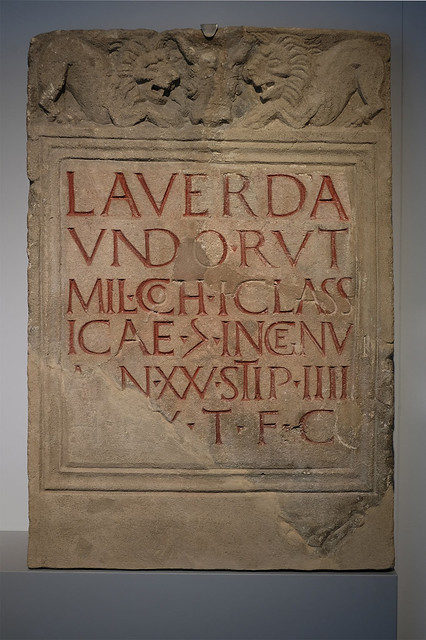 LAVERDA
VNDO·RVT
MIL·COH·I·CLASS
ICAE·>·INGENV
N·XXV·STIP·IIII
T·F·C